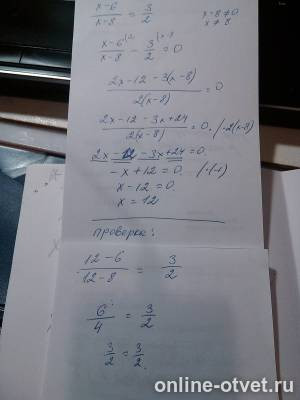 (x-6)/(x-8) = 3/2    x-8≠0
x≠8
(x-6)/(x-8) ^(2 - 3/2 ^(x-8 = 0
(2x-12-3(x-8))/(2(x-8)) = 0
(2x-12-3x+24)/(2(x-8)) = 0. /·2(x-8)
2x-12-3x+24=0.
-x+12=0. /·(-1)
x-12=0.
x=12
проверка:
(12-6)/(12-8) = 3/2
6/4 = 3/2
3/2 = 3/2.
online-otvet.ru